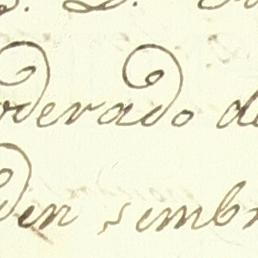 oderado de
den sembr